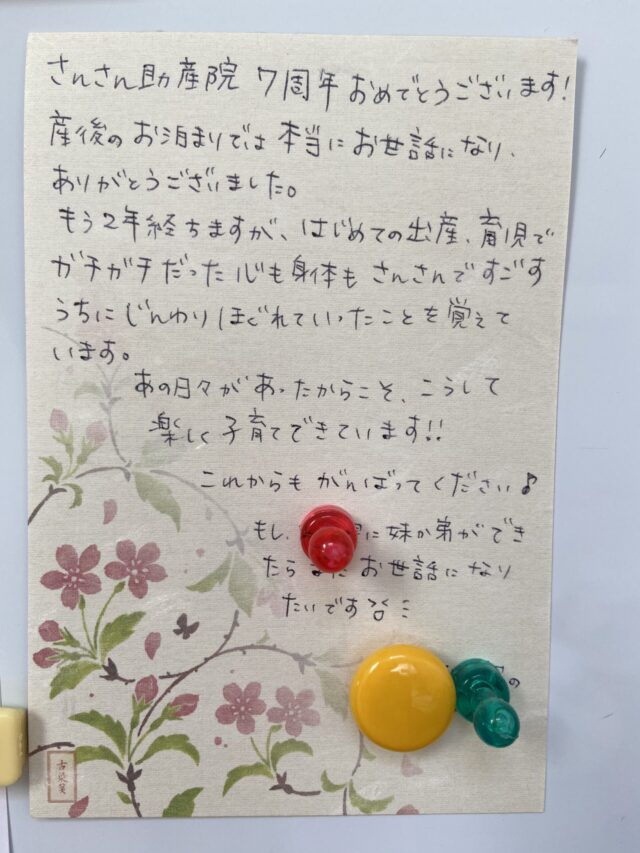 さんさん助産院 7周年 おめでとうございます!
産後の お泊まりでは 本当に お世話になり、
ありがとうございました。
もう2年経ちますが、はじめての出産、育児で
ガチガチだった心も身体も さんさんですごす
うちに じんわり ほぐれていったことを覚えて
います。
あの日々が あったからこそ、こうして
楽しく子育てできています!!
これからも がんばってください♪
もし、に妹か弟ができ
たら お世話になり
たいです
の
古染箋